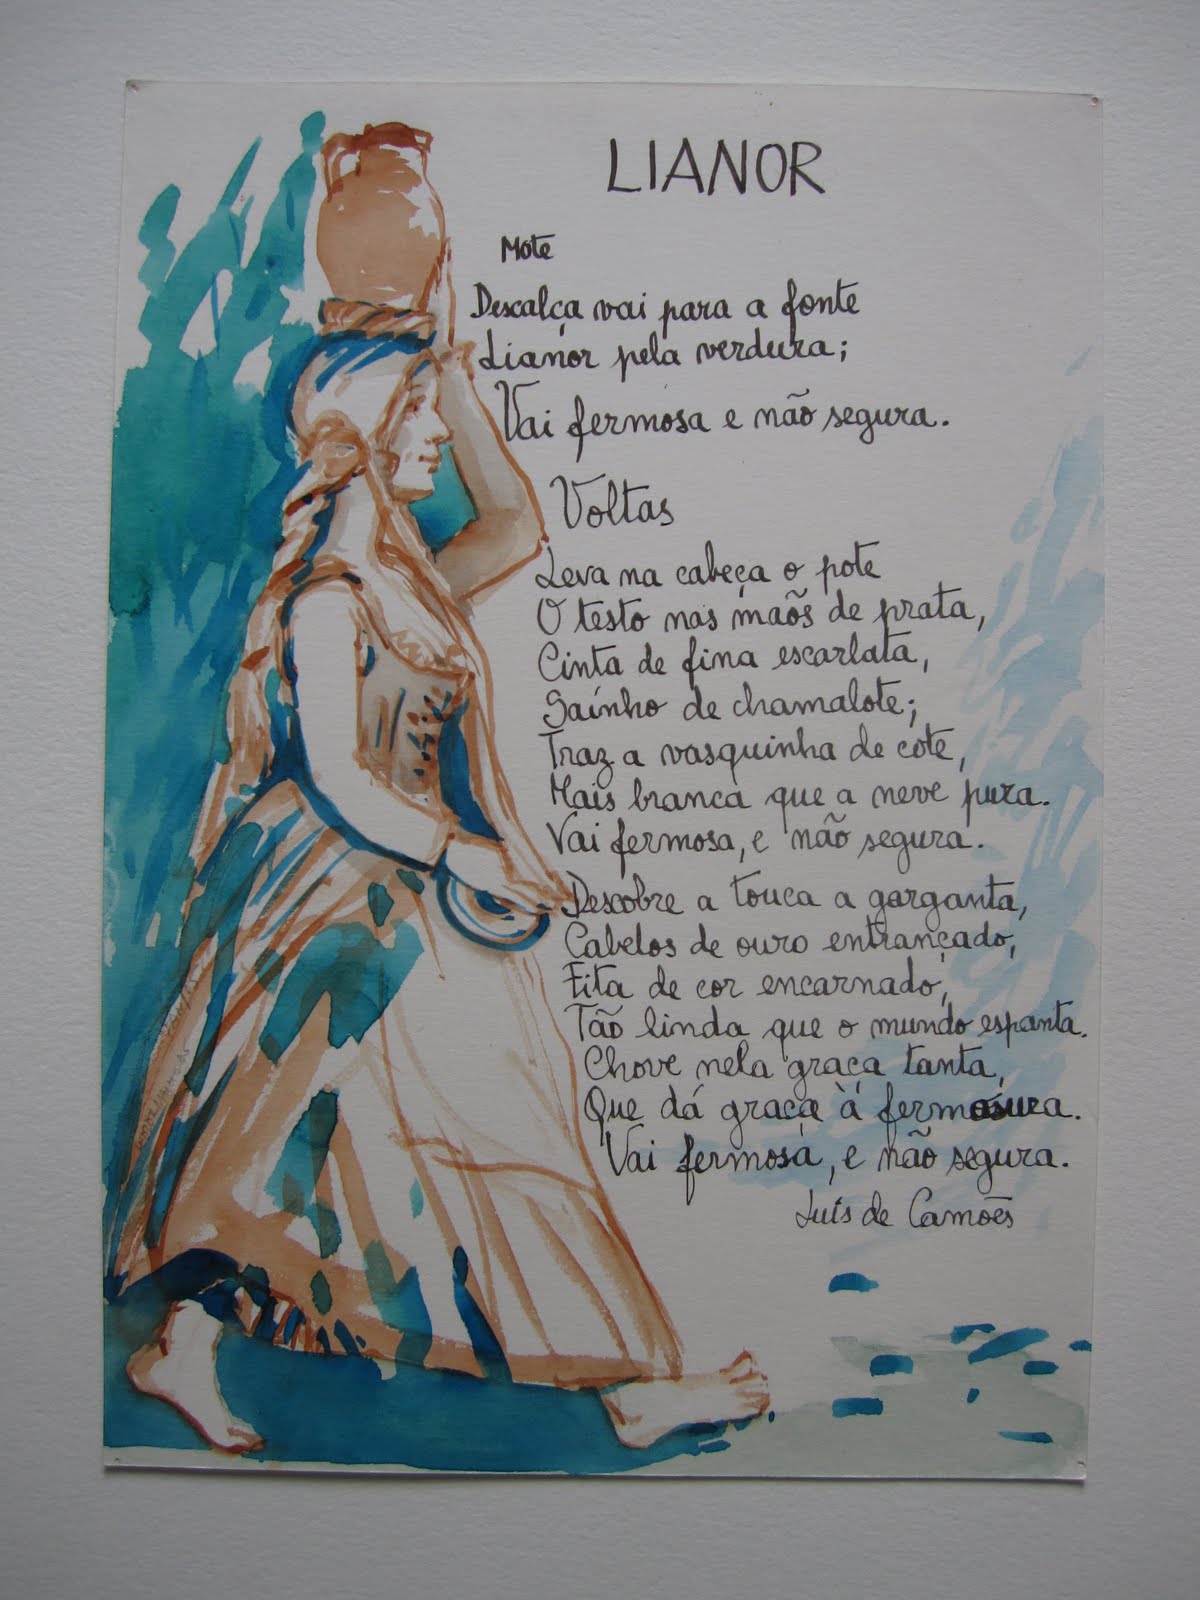 LIANOR
Mote
Descalça vai para a fonte
Lianor pela verdura;
Vai fermosa e não segura.
Voltas
Leva na cabeça o pote
O testo nas mãos de prata,
Cinta de fina escarlata,
Saínho de chamalote;
Traz a vasquinha de cote,
Mais branca que a neve pura.
Vai fermosa, e não segura.
Descobre a touca a garganta,
Cabelos de ouro entrançado,
Fita de cor encarnado,
Tão linda que o mundo espanta.
Chove nela graça tanta,
Que dá graça à fermosura.
Vai fermosa, e não segura.
Luís de Camões